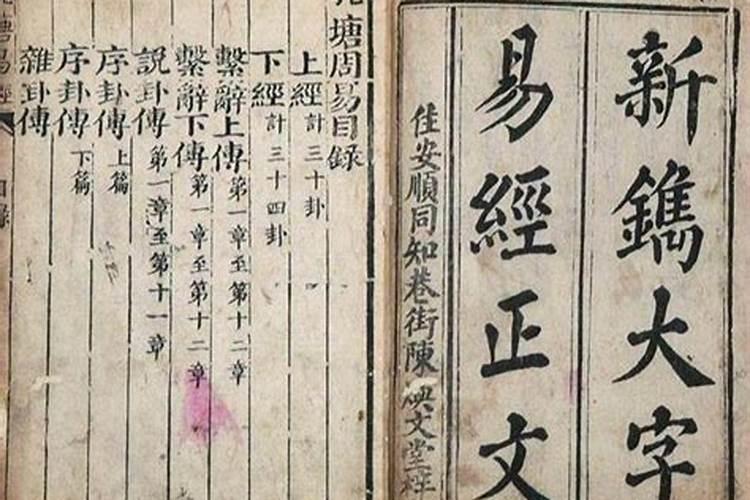 新鐫大字
易經正文
住安順同知巷街陳
文堂
塘周易目錄
上經計三十卦
下經計三十四卦
繫辭上傳第一章至第十二章
繫辭下傳第一章至第十二章
説卦傳第一章至第十一章
序卦傳上篇
序卦傳下篇
雜卦傳